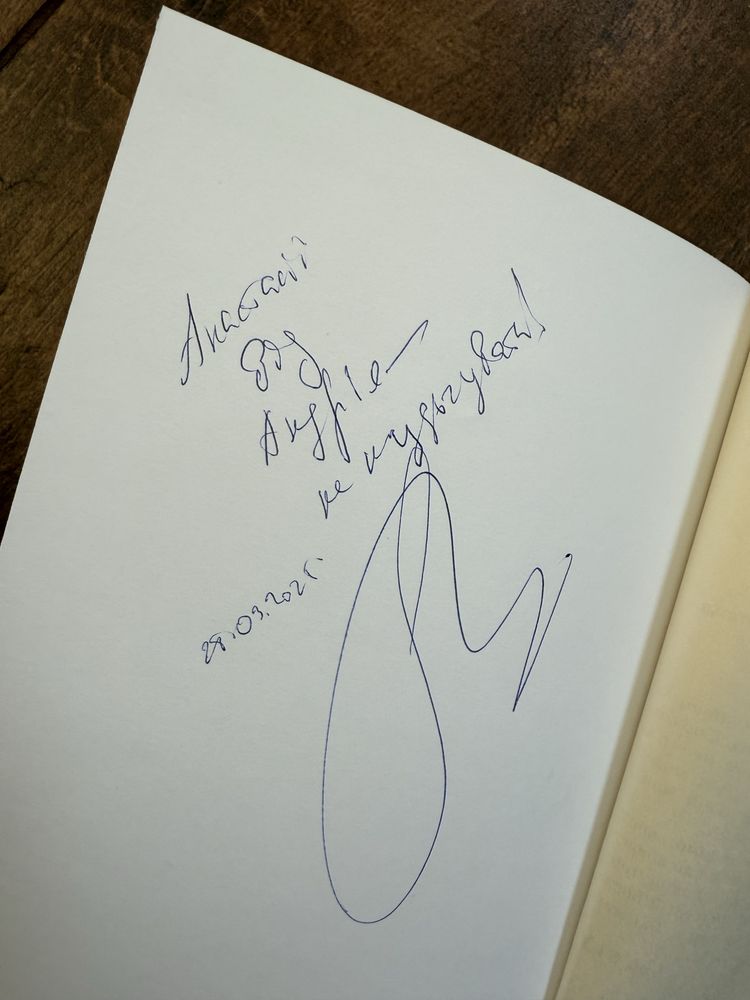 Анастасії
від
Андрія –
не нудьгувати!
28.03.2025